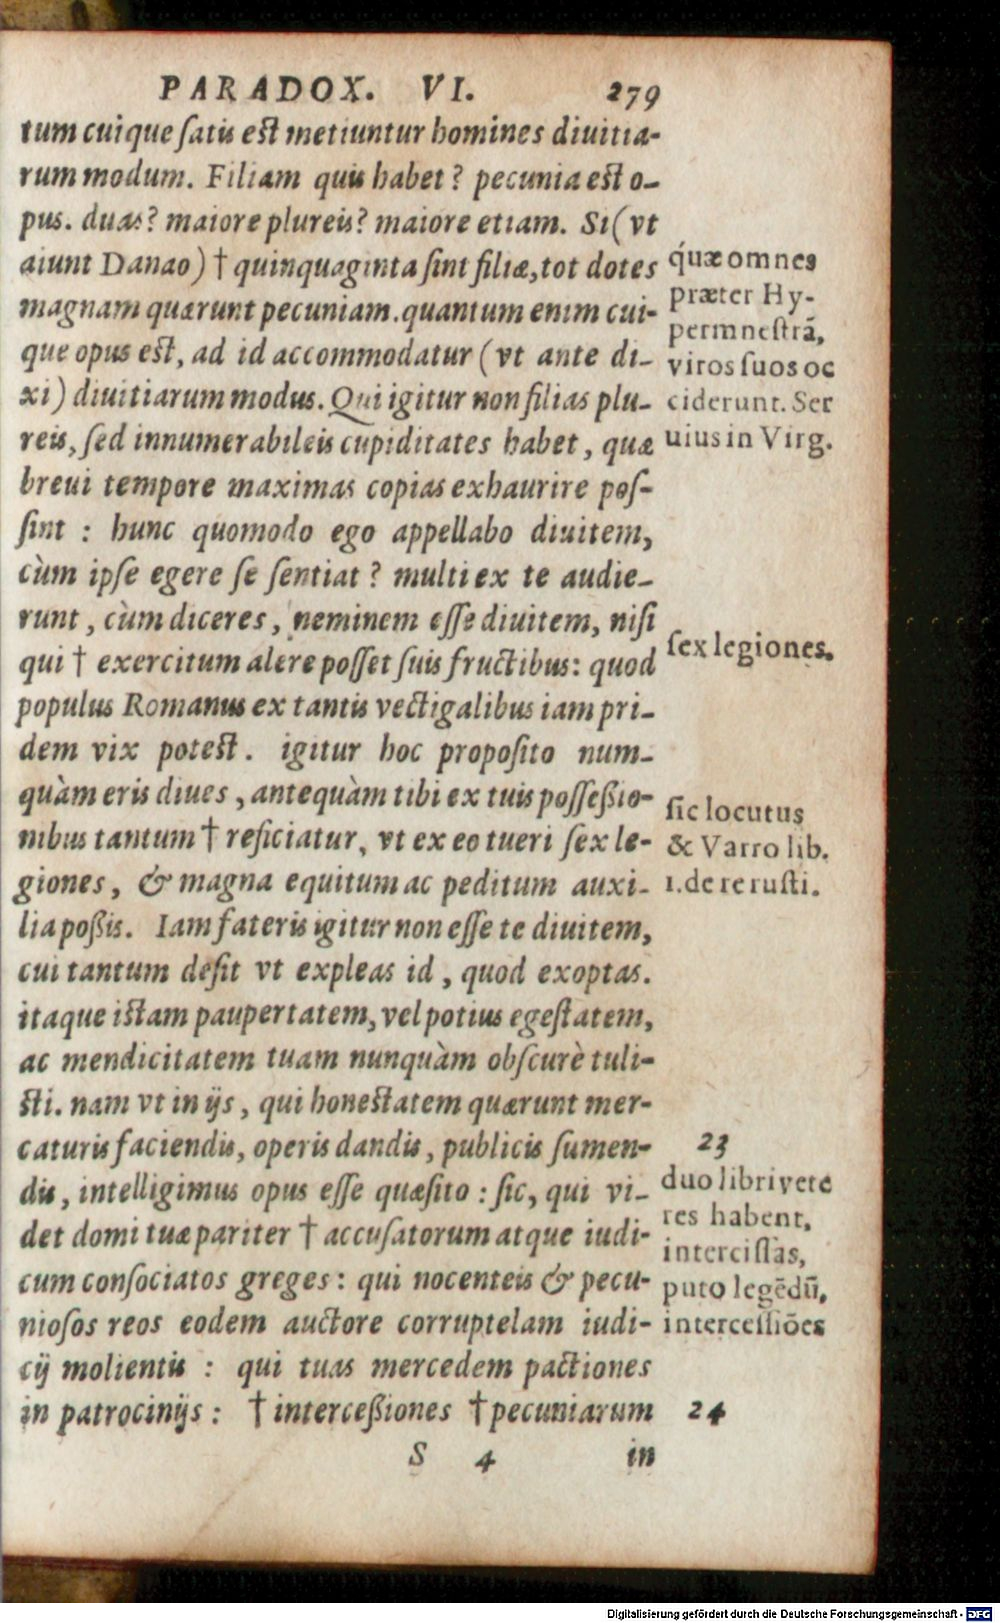 PARADOX. VI. 279
tum cuique ſatis eſt metiuntur homines diuitia-
rum modum. Filiam quis habet? pecunia eſt o-
pus. duas? maiore plureis? maiore etiam. Si (vt
aiunt Danao) † quinquaginta ſint filiæ, tot dotes
magnam quærunt pecuniam. quantum enim cui-
que opus eſt, ad id accommodatur (vt ante di-
xi) diuitiarum modus. Qui igitur non filias plu-
reis, ſed innumerabileis cupiditates habet, quæ
breui tempore maximas copias exhaurire poſ-
ſint : hunc quomodo ego appellabo diuitem,
cùm ipſe egere ſe ſentiat? multi ex te audie-
runt, cùm diceres, neminem eſſe diuitem, niſi
qui † exercitum alere poſſet ſuis fructibus: quod
populus Romanus ex tantis vectigalibus iam pri-
dem vix poteſt. igitur hoc propoſito num-
quàm eris diues, antequàm tibi ex tuis poſſeßio-
nibus tantum † reficiatur, vt ex eo tueri ſex le-
giones, & magna equitum ac peditum auxi-
lia poßis. Iam fateris igitur non eſſe te diuitem,
cui tantum deſit vt expleas id, quod exoptas.
itaque iſtam paupertatem, vel potius egeſtatem,
ac mendicitatem tuam nunquàm obſcurè tuli-
ſti. nam vt in ijs, qui honeſtatem quærunt mer-
caturis faciendis, operis dandis, publicis ſumen-
dis, intelligimus opus eſſe quæſito : ſic, qui vi-
det domi tuæ pariter † accuſatorum atque iudi-
cum conſociatos greges: qui nocenteis & pecu-
nioſos reos eodem auctore corruptelam iudi-
cij molientis : qui tuas mercedem pactiones
in patrocinijs : † interceßiones † pecuniarum
S 4 in
quæ omnes
præter Hy-
permneſtrā,
viros ſuos oc
ciderunt. Ser
uius in Virg.
ſex legiones.
ſic locutus
& Varro lib.
1. de re ruſti.
23
duo libri vete
res habent,
interciſſas,
puto legēdū,
interceſſiōes
24
Digitalisierung gefördert durch die Deutsche Forschungsgemeinschaft - DFG